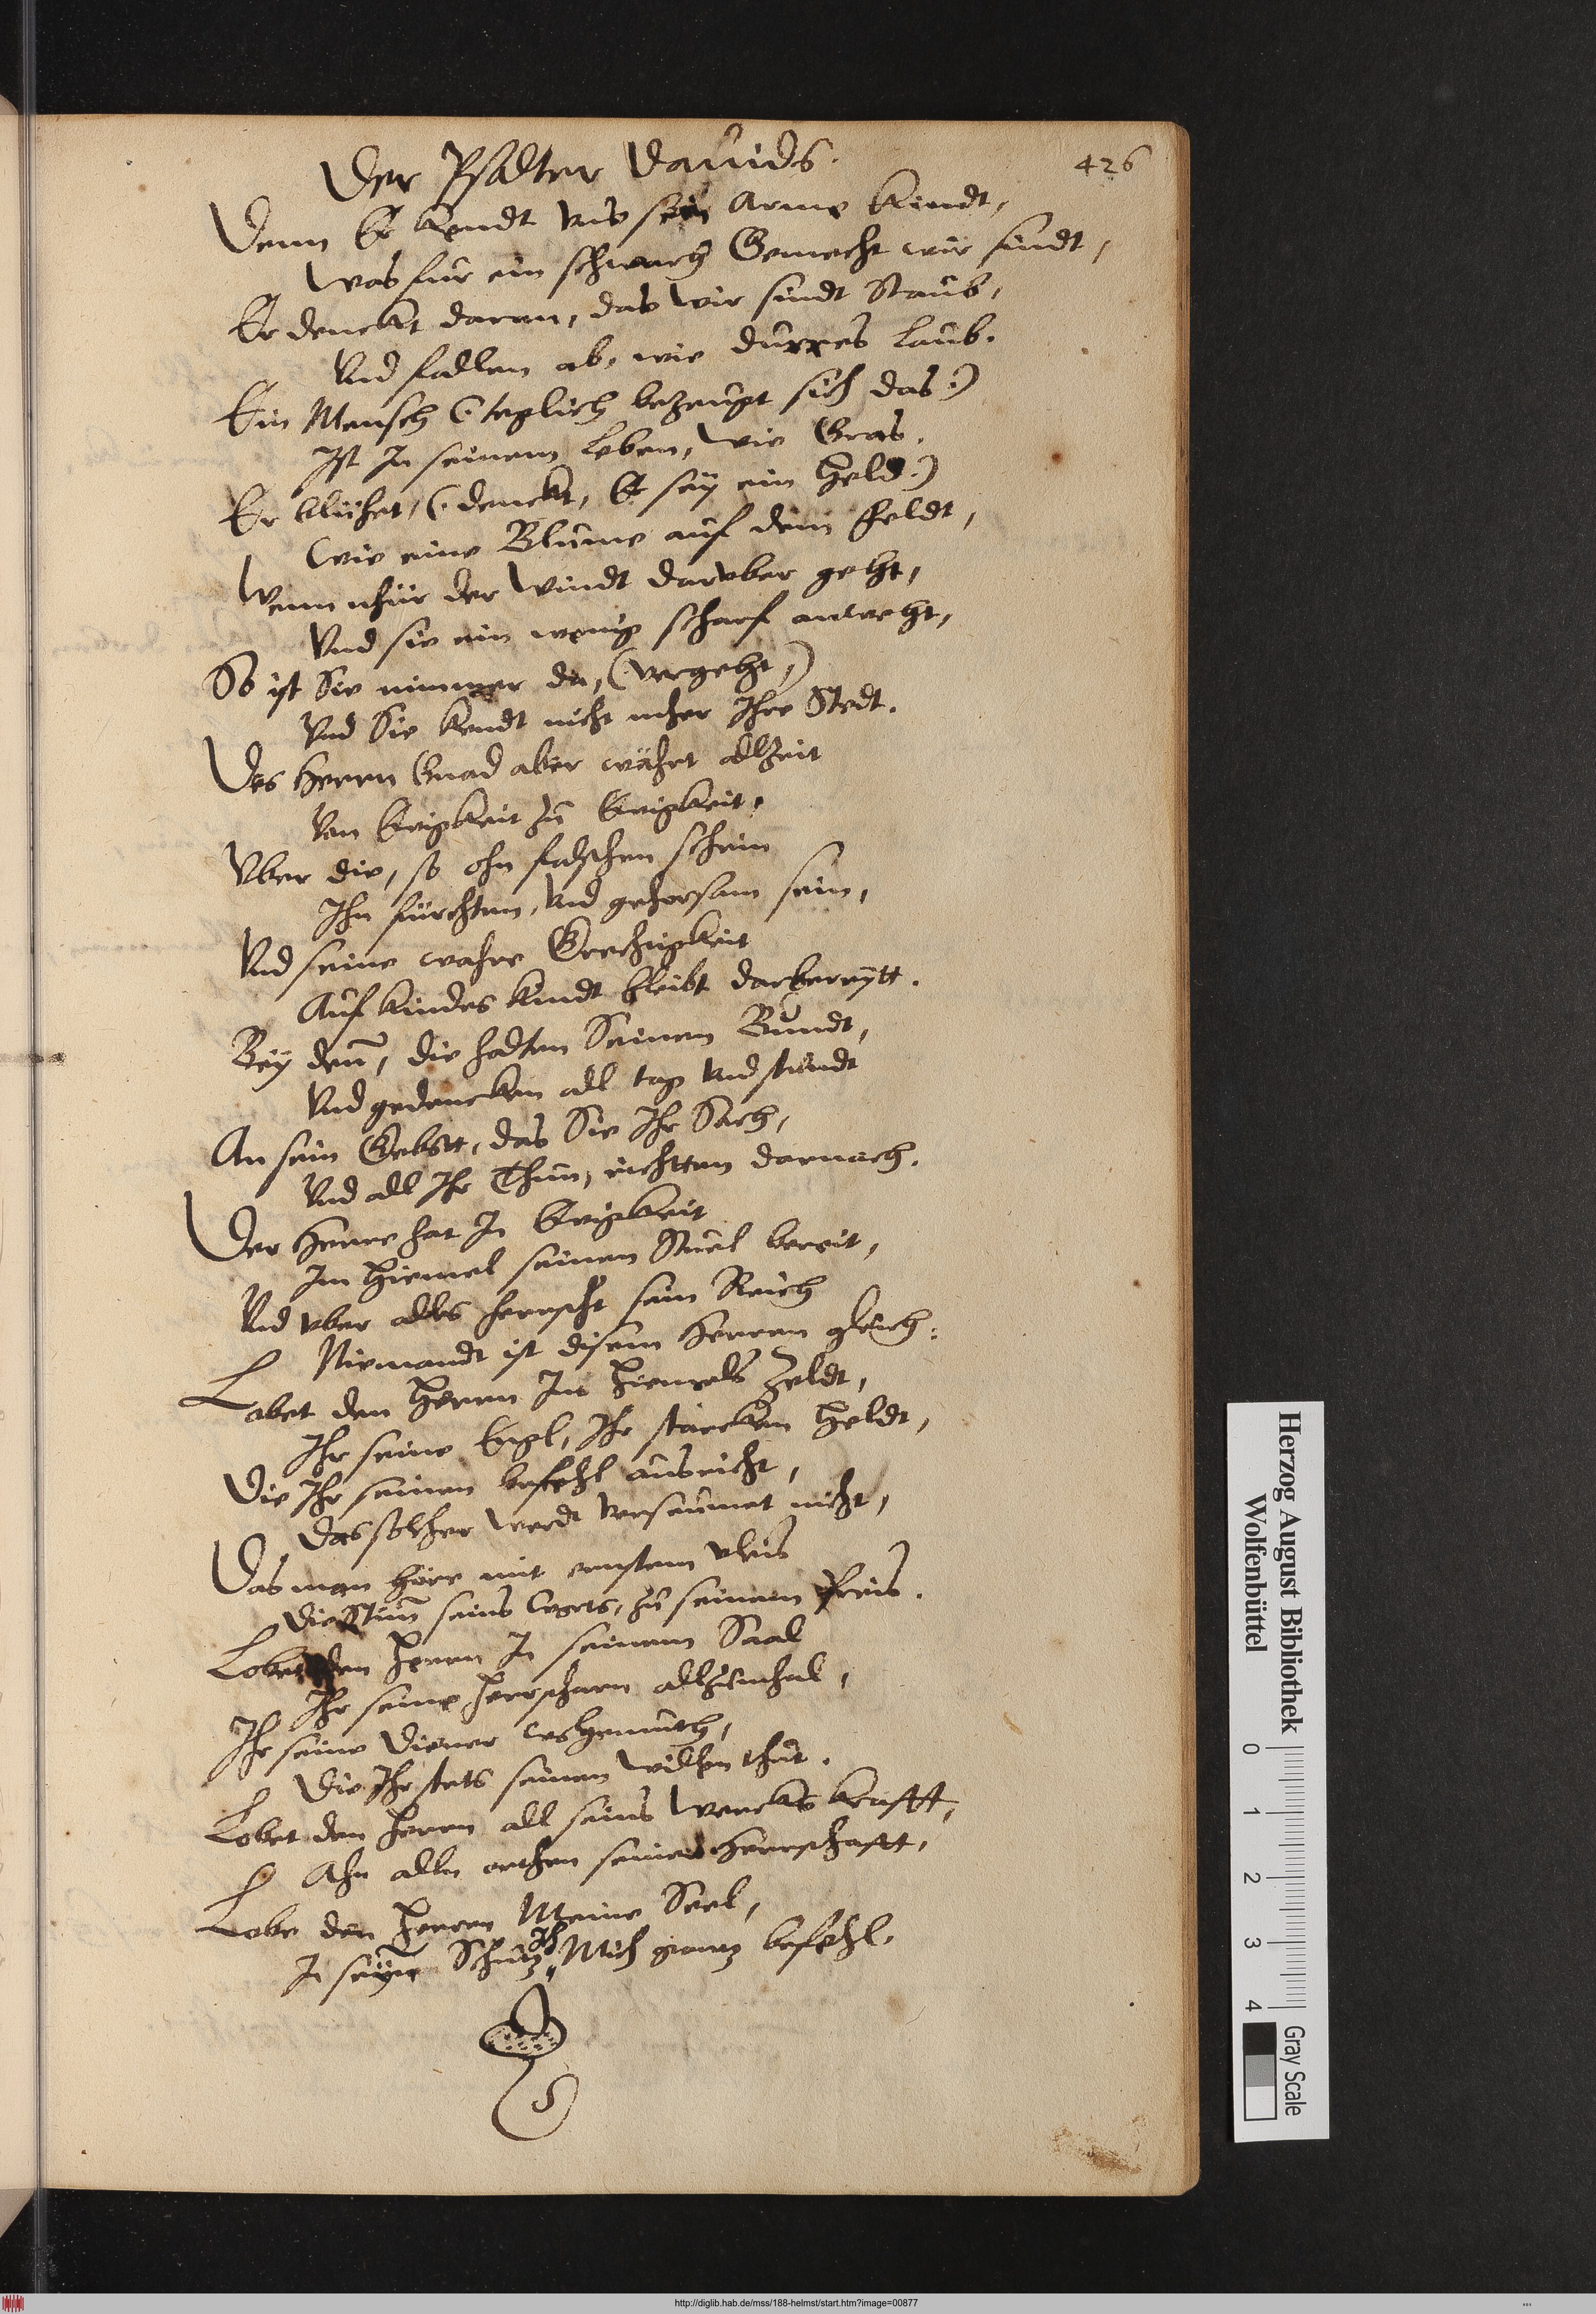 Der Psalter Dauids.
426
Denn Er kendt uns sein arme kindt,
Was fur ein schwach Gemecht wir sindt,
Er denckt daran, das wir sindt Staub,
Und fallen ab, wie durres Laub.
Ein Mensch (: teglich bezeugt sich das :)
Ist In seinem Leben, wie Gras.
Er blühet, (: denckt, Er sey ein Held :)
Wie eine Blume auf dem Feldt,
Wenn nhür der Windt daruber geht,
Und sie ein wenig scharf anweht,
So ist Sie nimmer da, (vergeht,)
Und Sie kendt nicht mher Ihre Stedt.
Des Herrn Gnad aber währt allzeit
Von Ewigkeit zu Ewigkeit.
Uber die, so ohn falschen schein
Ihn fürchten, Und gehorsam sein,
Und seine wahre Grechtigkeit
Auf kindes kindt bleibt
Bey denn, die halten Seinen Bundt,
Und gedencken all tag Und stundt
An sein Gebott, das Sie Ihr Sach,
Und all Ihr Thun, richtten darnach.
Der Herre hat In Ewigkeit
Im Hiemel seinen Stuel bereit,
Und uber alles herrscht sein Reich
Niemandt ist disem Herren gleich:
Lobet den Herrn Ins Hiemels Zeldt,
Ihr seine Engl, Ihr starcken Heldt,
Die Ihr seinen befehl ausricht,
Das solcher werdt versaumet nicht,
Das man höre mit ernstem vleis
Die Stim seins Worts, zu seinem Preis.
Lobet den Herrn In seinem Saal
Ihr seine Herrscharn allzumhal,
Ihr seine Diener wolgemuth,
Die Ihr stets seinen willen thut.
Lobet den Herrn all seins Wercks krafft,
Ahn alln orthen seiner Herrschafft,
Lobe den Herren Meine Seel,
In seyne Schutz Ich Mich gantz befehl.
Herzog August Bibliothek
Wolfenbüttel
0 1 2 3 4
Gray Scale
http://diglib.hab.de/mss/188-helmst/start.htm?image=00877